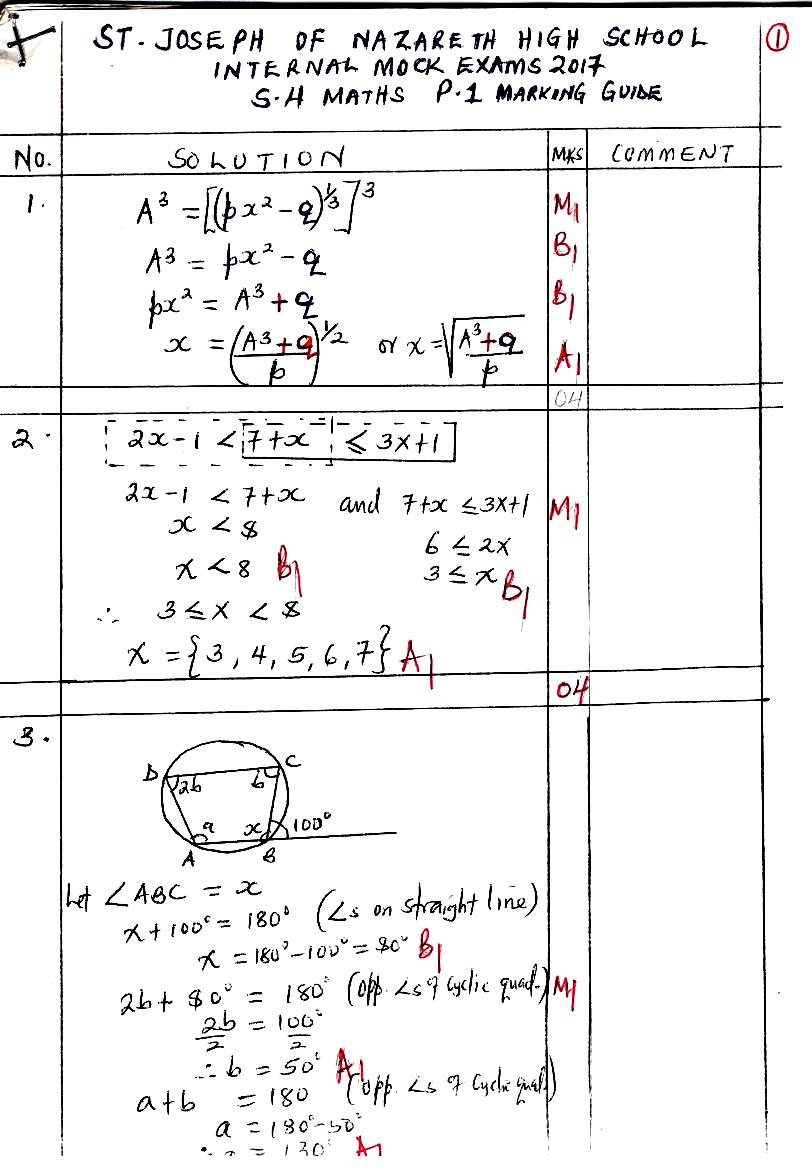 ST. JOSEPH OF NAZARETH HIGH SCHOOL ①
INTERNAL MOCK EXAMS 2017
S.4 MATHS P.1 MARKING GUIDE
No. SOLUTION MKS COMMENT
1. A³ = [(px² - q)^⅓]³ M1
A³ = px² - q B1
px² = A³ + q B1
x = ((A³+q)/p)^1/2 or x = √((A³+q)/p) A1
04
2. 2x-1 < 7+x ≤ 3x+1
2x-1 < 7+x and 7+x ≤ 3x+1 M1
x < 8 6 ≤ 2x
x < 8 B1 3 ≤ x B1
∴ 3 ≤ x < 8
x = {3, 4, 5, 6, 7} A1
04
3.
D 2b b C
a x 100°
A B
Let ∠ABC = x
x + 100° = 180° (∠s on straight line)
x = 180° - 100° = 80° B1
2b + 80° = 180° (opp. ∠s of cyclic quad.) M1
2b/2 = 100°/2
∴ b = 50° A1
a + b = 180 (opp. ∠s of cyclic quad)
a = 180° - 50°
∴ a = 130° A1